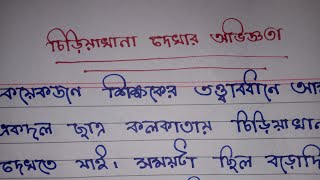 চিড়িয়াখানা দেখার অভিজ্ঞতা
কয়েকজন শিক্ষকের তত্ত্বাবধানে
একদল ছাত্র কলকাতায় চিড়িয়াখানা
দেখতে যাই। সময়টা ছিল